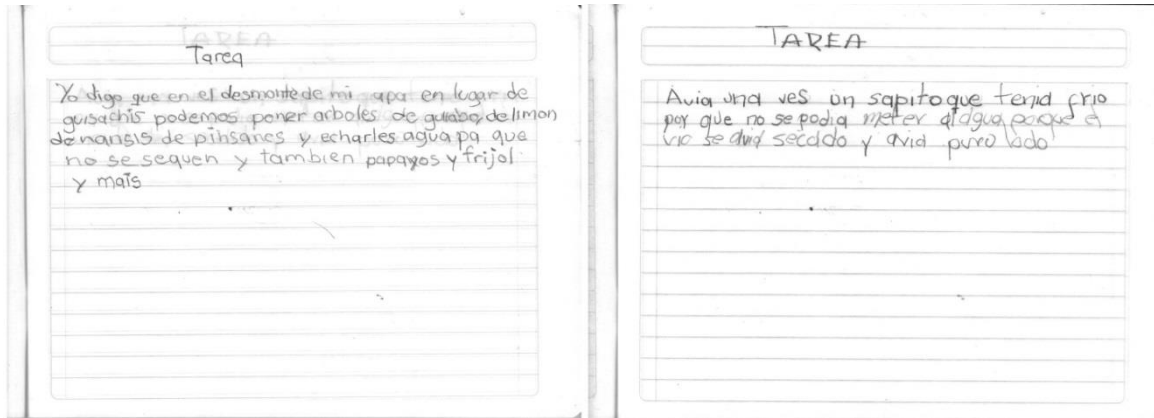 Tarea
Yo digo que en el desmonte de mi apa en lugar de
guisachis podemos poner arboles de guaba, de limon
de nansis de pihsanes y echarles agua pa que
no se sequen y tambien papayos y frijol
y mais
TAREA
Avia una ves un sapito que tenia frio
por que no se podia meter al agua porque el
rio se avia secado y avia puro lodo